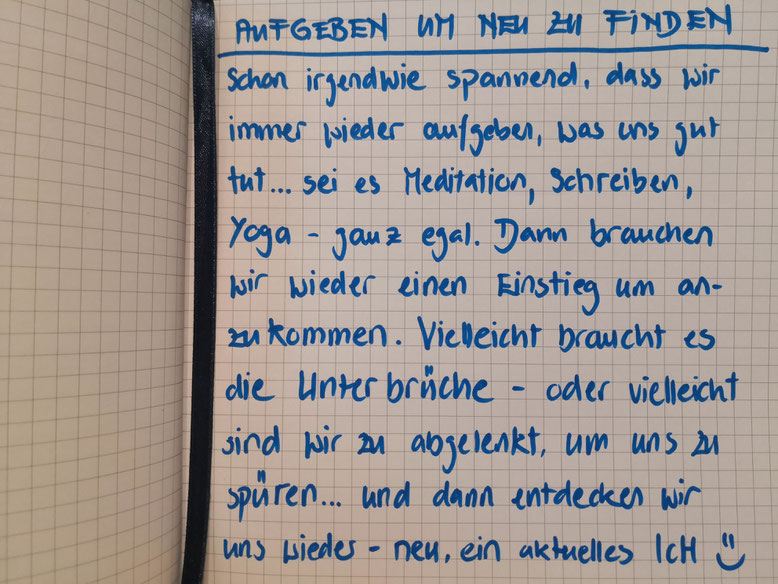 AUFGEBEN UM NEU ZU FINDEN
Schon irgendwie spannend, dass wir
immer wieder aufgeben, was uns gut
tut... sei es Meditation, Schreiben,
Yoga - ganz egal. Dann brauchen
wir wieder einen Einstieg um an-
zukommen. Vielleicht braucht es
die Unterbrüche - oder vielleicht
sind wir zu abgelenkt, um uns zu
spüren... und dann entdecken wir
uns wieder - neu, ein aktuelles ICH ü